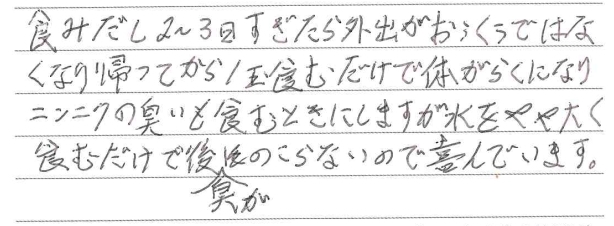 飲みだし2〜3日すぎたら外出がおっくうではな
くなり帰ってから1玉飲むだけで体がらくになり
ニンニクの臭いも飲むときにしますが水をやや大く
飲むだけで後は臭がのこらないので喜んでいます。